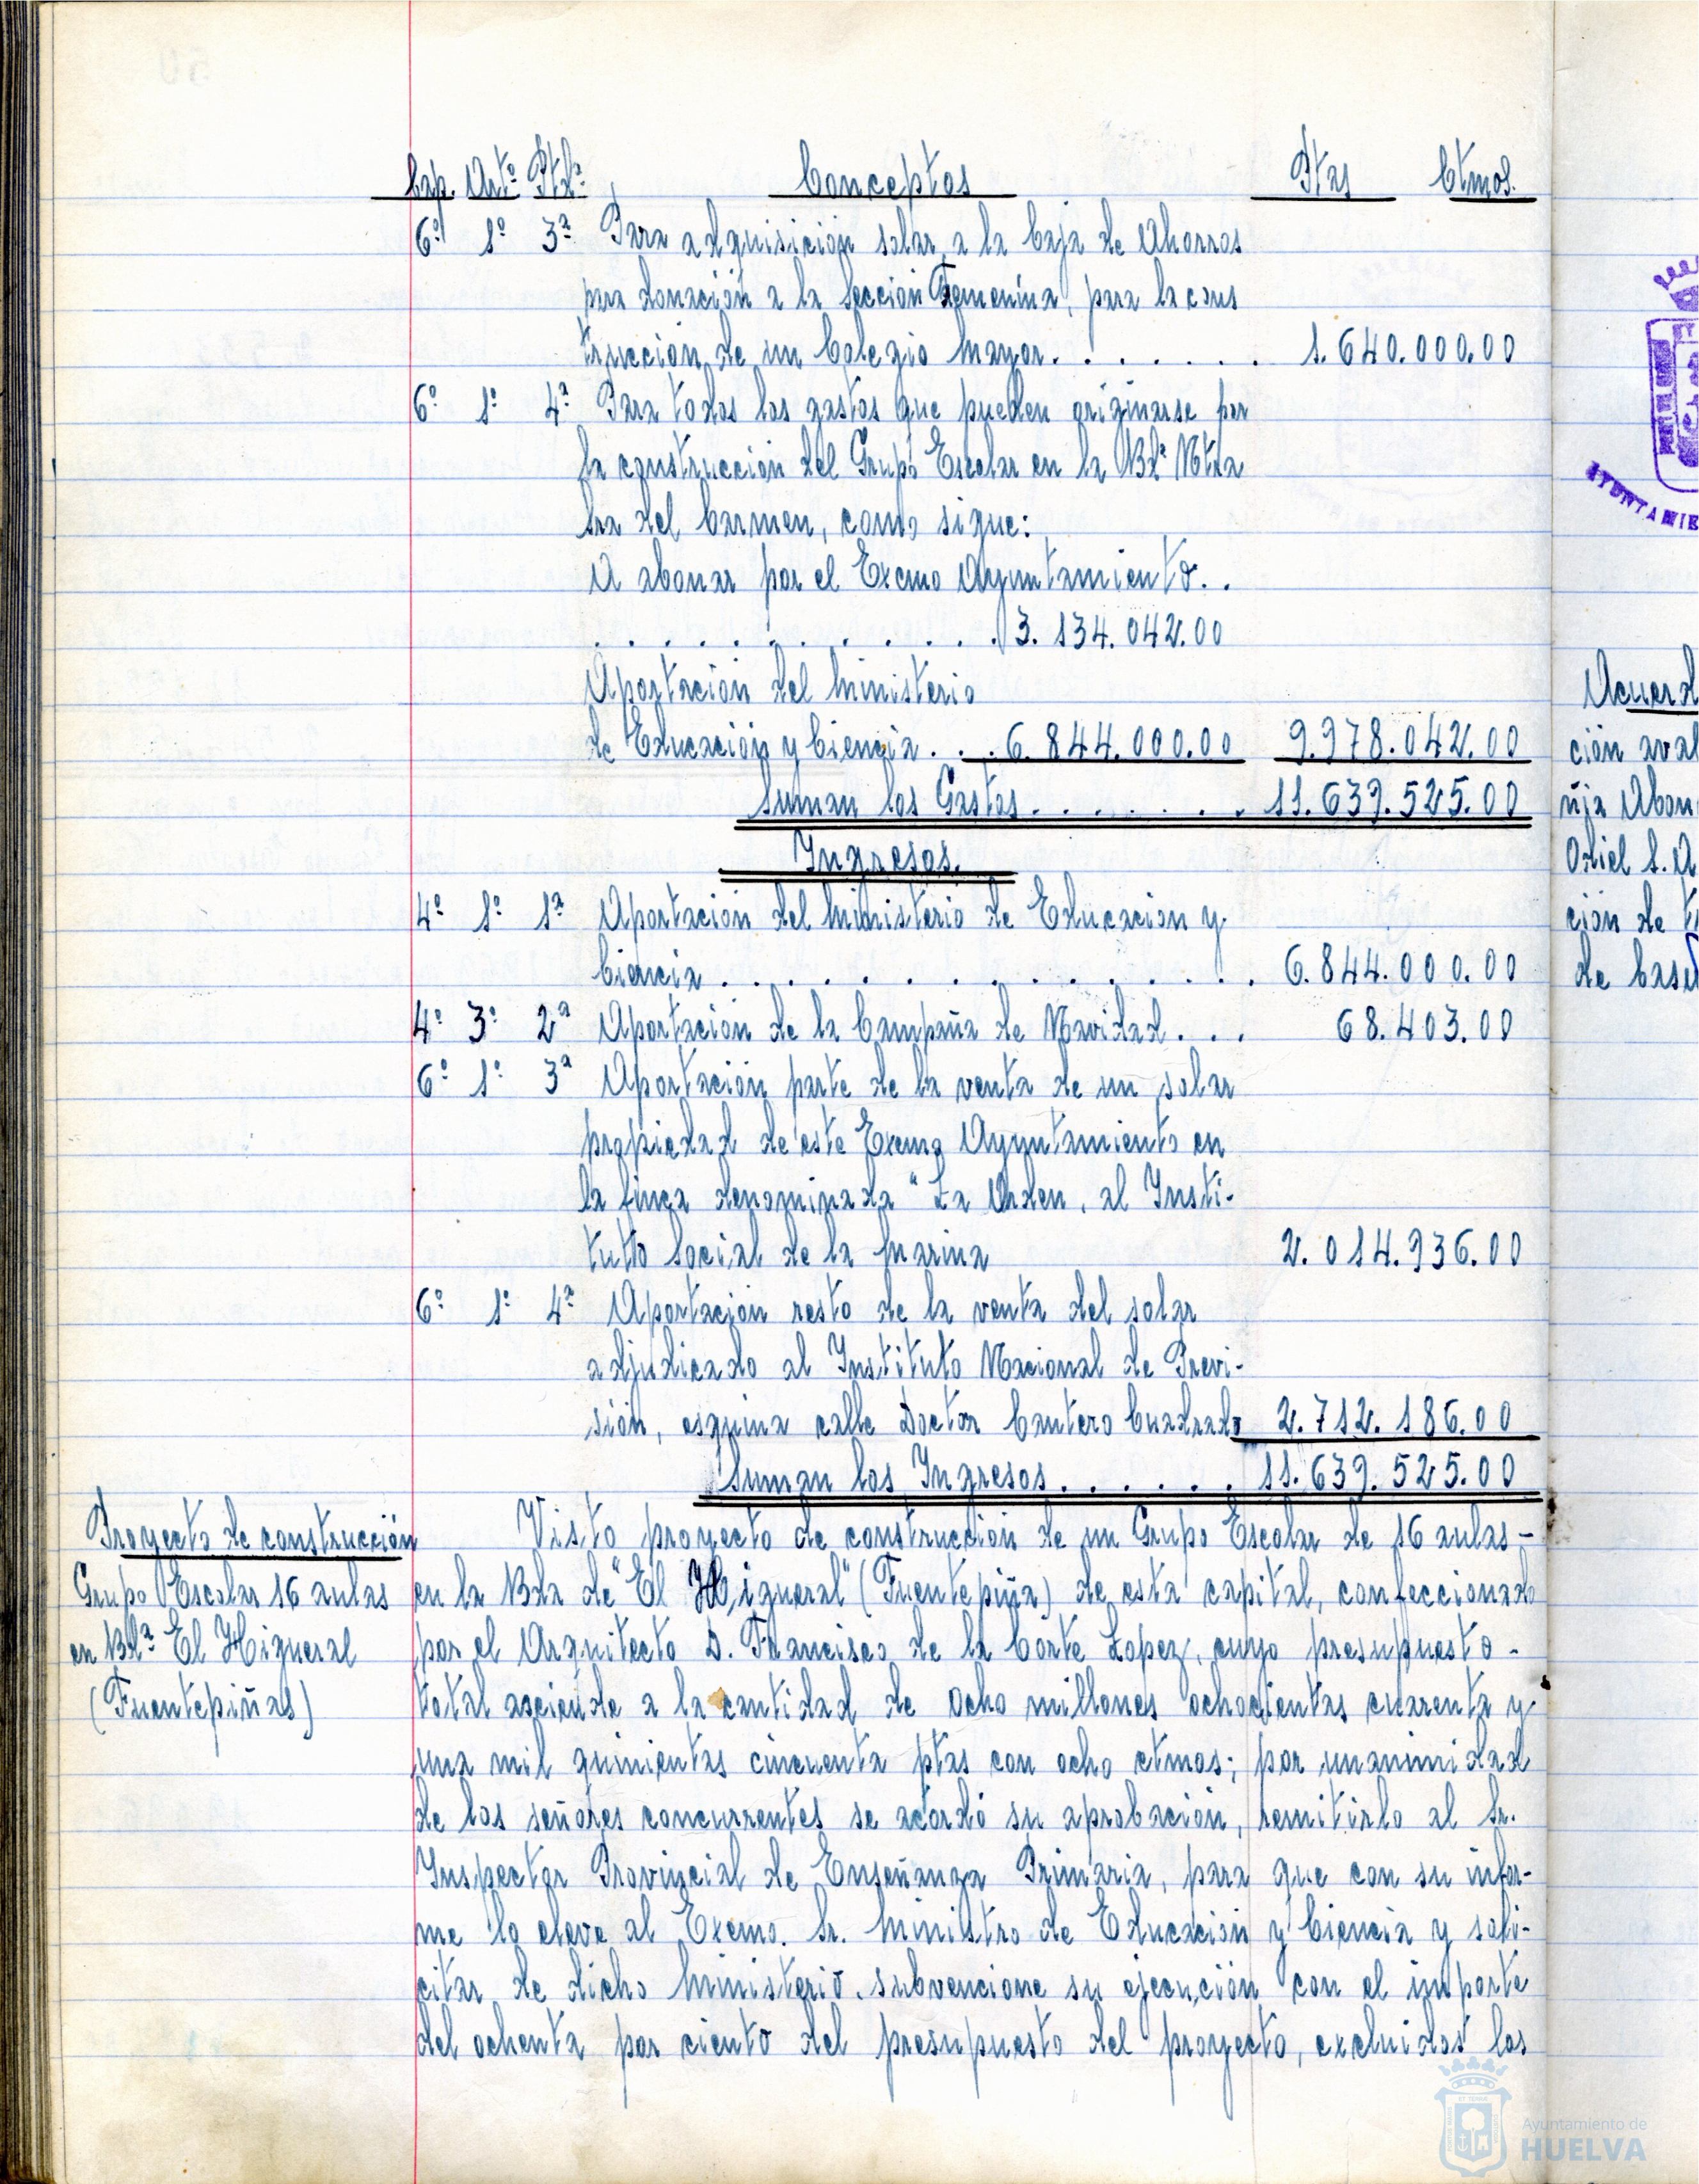 Cap. Artº Ptdª Conceptos Ptas Ctmos.
6º 1º 3ª Para adquisición solar a la Caja de Ahorros
para donación a la Sección Femenina, para la cons
trucción de un Colegio Mayor. . . . . . . 1.640.000.00
6º 1º 4ª Para todos los gastos que pueden originarse por
la construcción del Grupo Escolar en la Bdª Ntra
Sra del Carmen, como sigue:
A abonar por el Excmo Ayuntamiento. .
. . . . . . . . . . . . 3.134.042.00
Aportación del Ministerio
de Educación y Ciencia . . . 6.844.000.00 9.978.042.00
Suman los Gastos. . . . . . . 11.639.525.00
Ingresos.
4º 1º 1ª Aportación del Ministerio de Educación y
Ciencia . . . . . . . . . . . . . . . . 6.844.000.00
4º 3º 2ª Aportación de la Campaña de Navidad. . . 68.403.00
6º 1º 3ª Aportación parte de la venta de un solar
propiedad de este Excmo Ayuntamiento en
la finca denominada "La Orden, al Insti-
tuto Social de la Marina 2.014.936.00
6º 1º 4ª Aportación resto de la venta del solar
adjudicado al Instituto Nacional de Previ-
sión, esquina calle Doctor Cantero Cuadrado 2.712.186.00
Suman los Ingresos. . . . . . 11.639.525.00
Proyecto de construcción
Grupo Escolar 16 aulas
en Bdª El Higueral
(Fuentepiñas)
Visto proyecto de construcción de un Grupo Escolar de 16 aulas -
en la Bda de "El Higueral" (Fuentepiña) de esta capital, confeccionado
por el Arquitecto D. Francisco de la Corte Lopez, cuyo presupuesto -
total asciende a la cantidad de ocho millones ochocientas cuarenta y
una mil quinientas cincuenta ptas con ocho ctmos; por unanimidad
de los señores concurrentes se acordó su aprobación, remitirlo al Sr.
Inspector Provincial de Enseñanza Primaria, para que con su infor-
me lo eleve al Excmo. Sr. Ministro de Educación y Ciencia y soli-
citar de dicho Ministerio subvencione su ejecución con el importe
del ochenta por ciento del presupuesto del proyecto, excluidos los
Acuerd
ción aval
ñia Abon
Odiel S. A
ción de
de basu
AYUNTAMIE
Ayuntamiento de
HUELVA